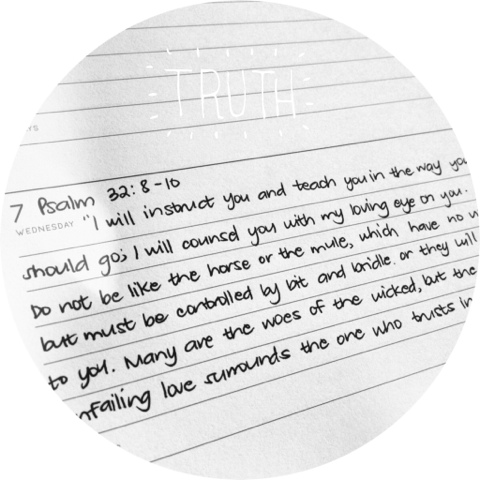 TRUTH
7 Psalm 32:8-10
WEDNESDAY "I will instruct you and teach you in the way you
should go; I will counsel you with my loving eye on you.
Do not be like the horse or the mule, which have no
but must be controlled by bit and bridle. or they will
to you. Many are the woes of the wicked, but the
love surrounds the one who trusts in